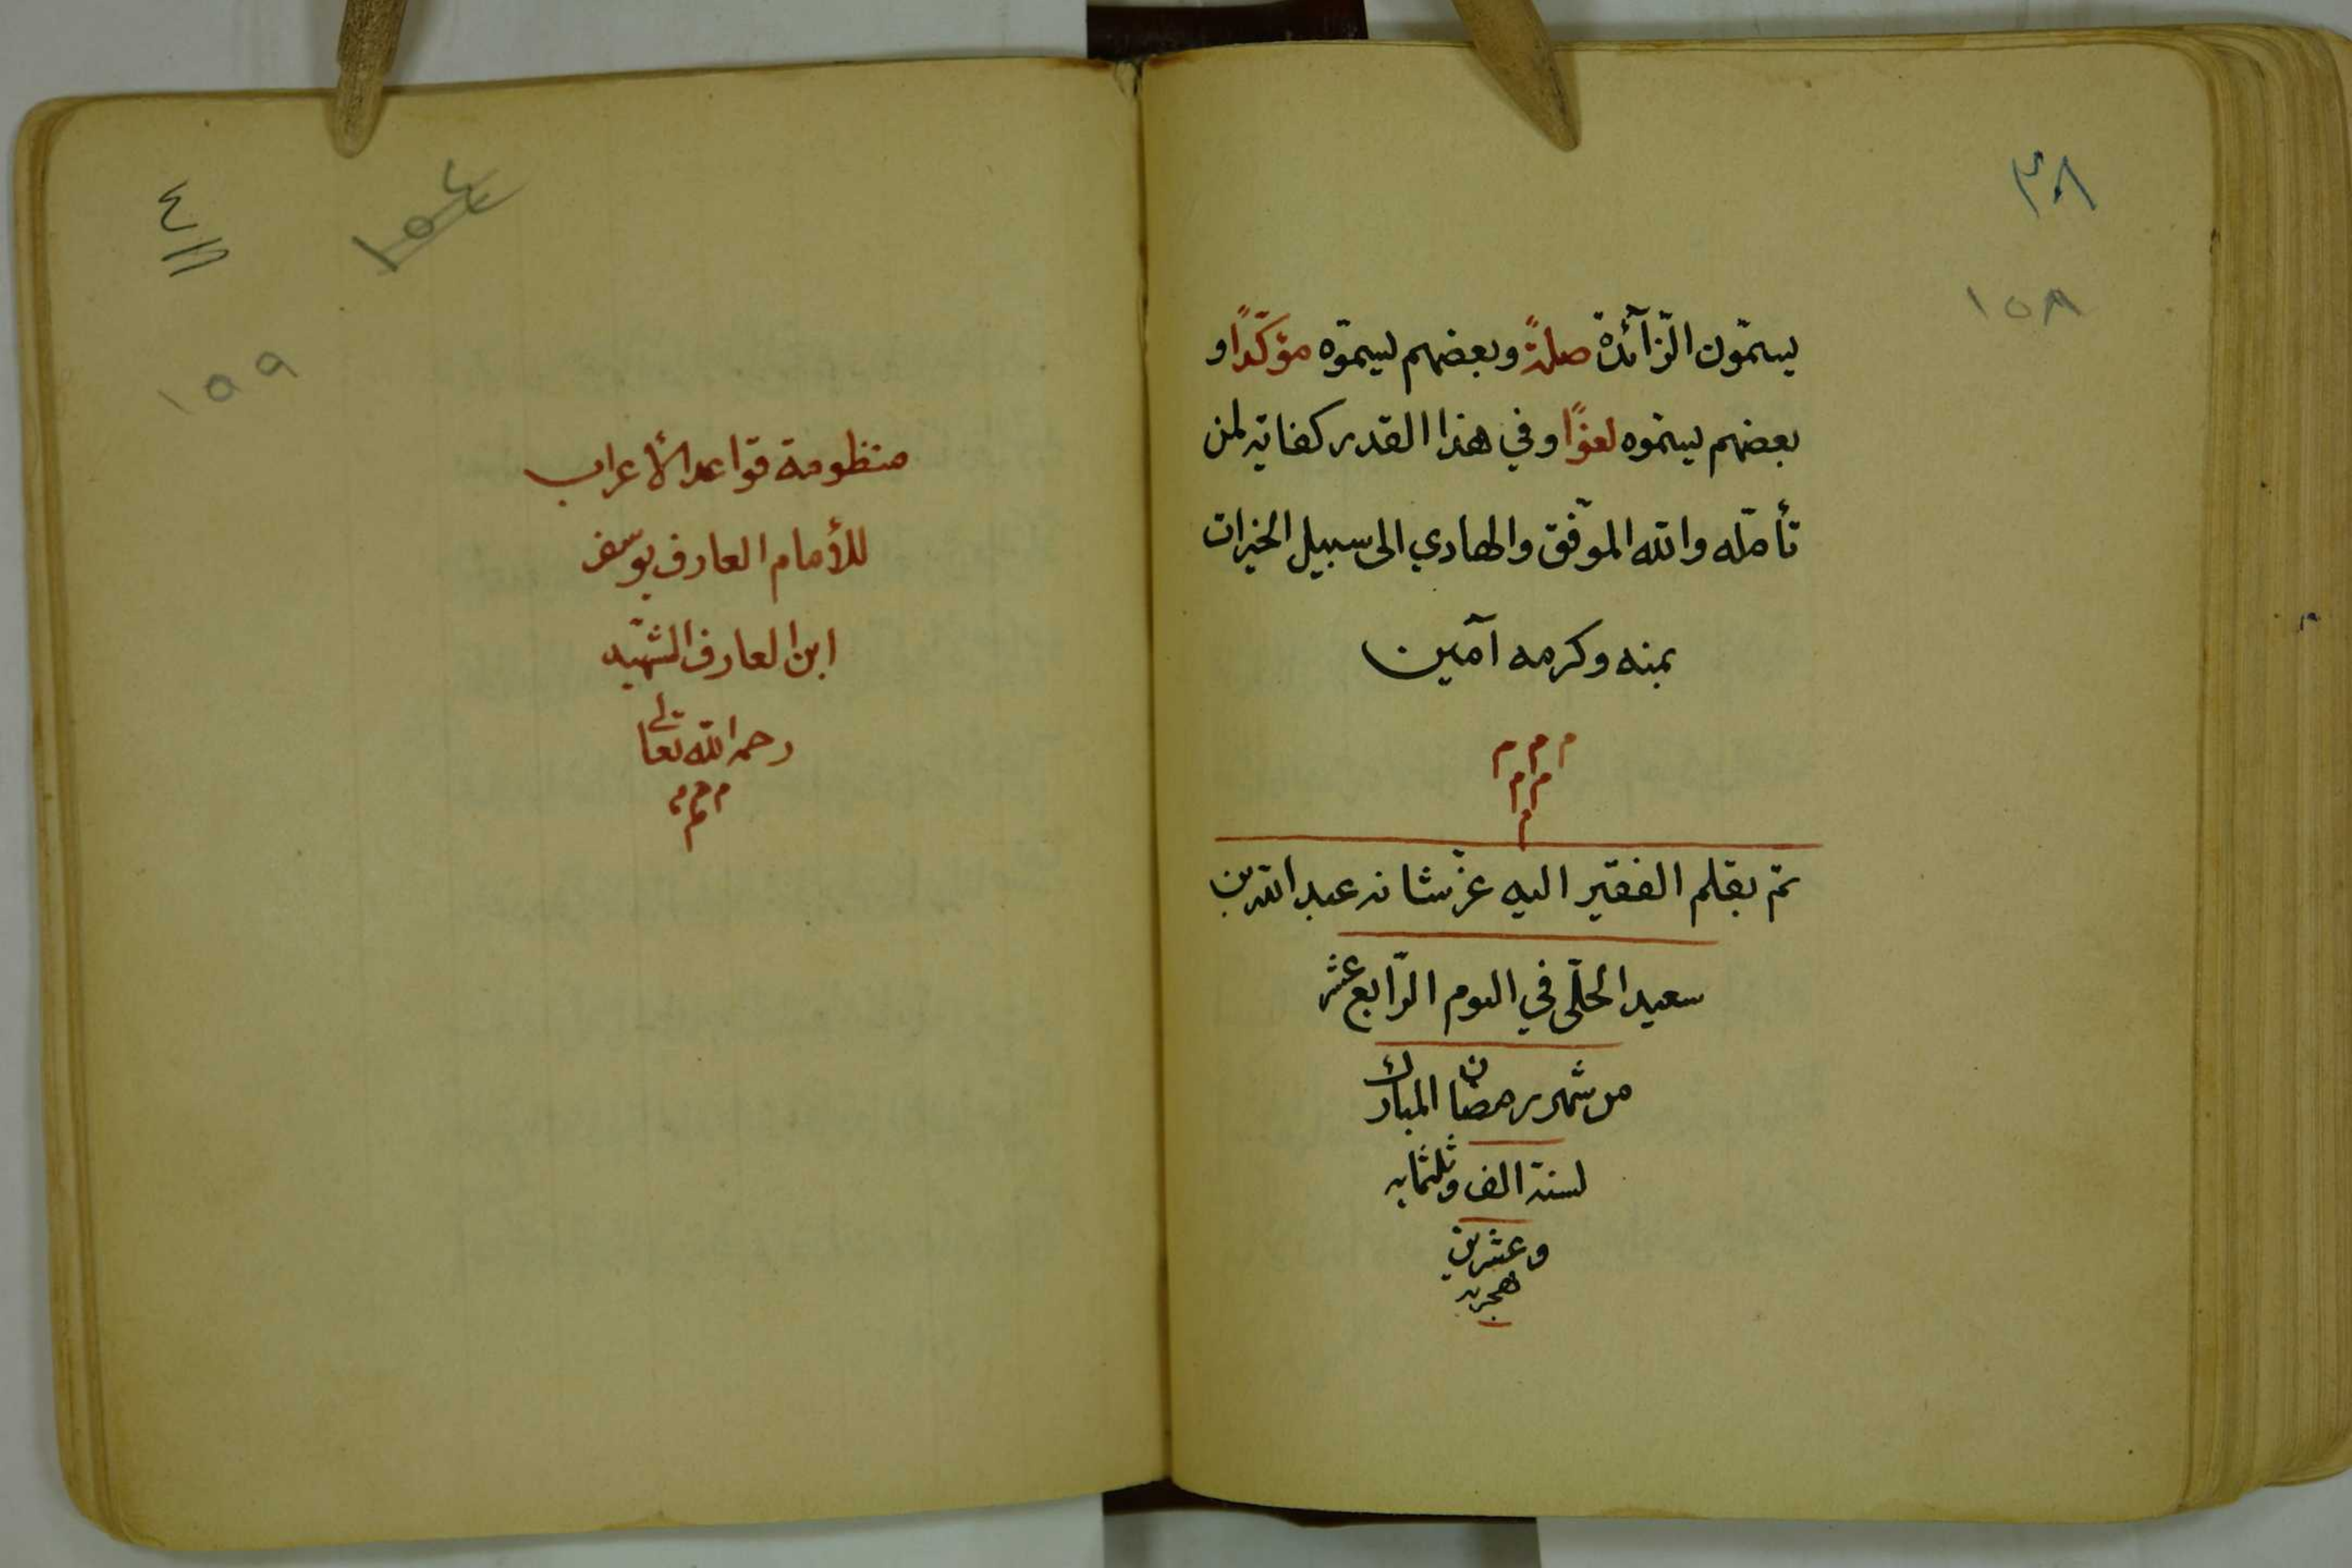 ٣٨
١٥٨
يسمّون الزّآئدة صلةً وبعضهم يسمّوه مؤكّدًا و
بعضهم يسمّوه لغوًا وفي هذا القدر كفاية لمن
تأمّله والله الموّفق والهادي الى سبيل الخيرات
بمنه وكرمه آمين
م م م
م م
م
تمّ بقلم الفقير اليه عزّ شانه عبد الله بن
سعيد الحلّى في اليوم الرّابع عشر
من شهر رمضان المبارك
لسنة الف وثلثمايه
وعشرين
هجريه
٤
١٥٩
منظومة قواعد الأعراب
للأمام العارف يوسف
ابن العارف الشّهيد
رحمه الله تعالى
م م م
م